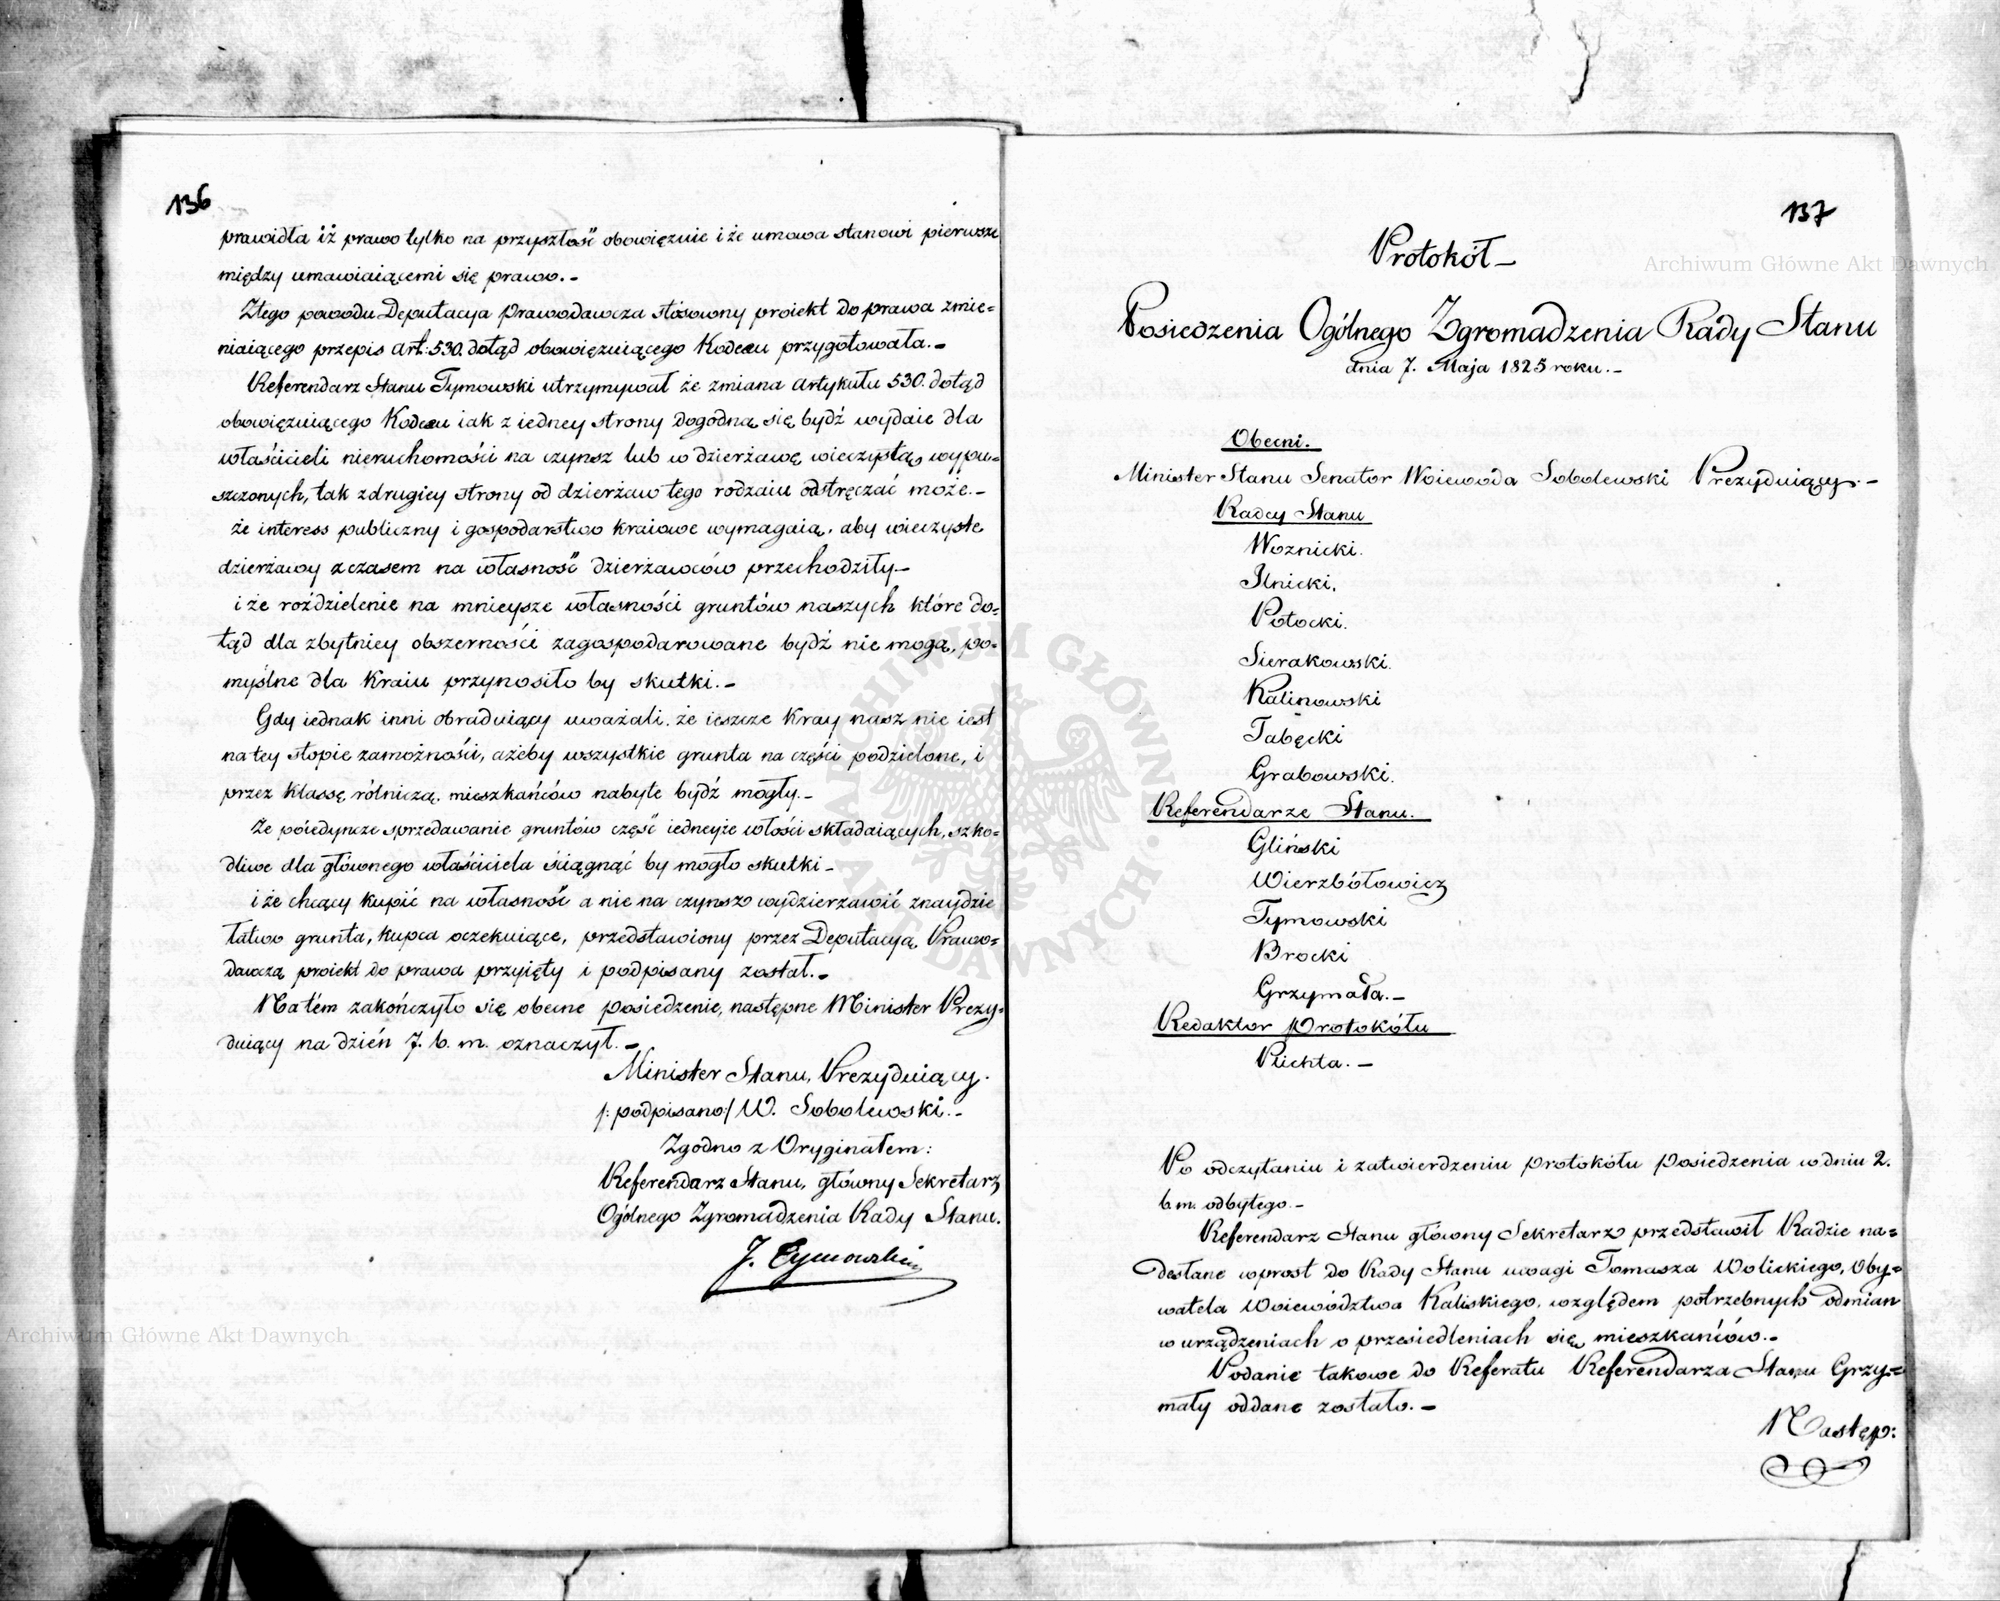 136
prawidła iż prawo tylko na przyszłość obowięzuie i że umowa stanowi pierwsze
między umawiaiącemi się prawo.–
Ztego powodu Deputacya Prawodawcza stósowny proiekt do prawa zmie=
niaiącego przepis art: 530. dotąd obowięzuiącego Kodexu przygotowała.–
Referendarz Stanu Tymowski utrzymywał że zmiana artykułu 530. dotąd
obowięzuiącego Kodexu iak z iedney strony dogodną się bydź wydaie dla
właścicieli nieruchomości na czynsz lub w dzierżawę wieczystą wypu=
szczonych, tak zdrugiey strony od dzierżaw tego rodzaiu odstręczać może.–
że interess publiczny i gospodarstwo kraiowe wymagaią, aby wieczyste
dzierżawy z czasem na własność dzierżawców przechodziły–
i że roździelenie na mnieysze własności gruntów naszych które do=
tąd dla zbytniey obszerności zagospodarowane bydź nie mogą, po=
myślne dla Kraiu przynosiło by skutki.–
Gdy iednak inni obraduiący uważali, że ieszcze Kray nasz nie iest
na tey stopie zamożności, ażeby wszystkie grunta na części podzielone, i
przez klassę rólniczą mieszkańców nabyte bydź mogły.–
Że póiedyncze sprzedawanie gruntów część iedneyże włości składaiących, szko=
dliwe dla głównego właściciela ściągnąć by mogło skutki–
i że chcący kupić na własność a nie na czynsz wydzierżawić znaydzie
łatwo grunta, kupca oczekuiące, przedstawiony przez Deputacyą Prawo=
dawczą proiekt do prawa przyięty i podpisany został.–
Na tém zakończyło się obecne posiedzenie, następne Minister Prezy=
duiący na dzień 7. b. m. oznaczył.–
Minister Stanu, Prezyduiący.
/: podpisano:/ W. Sobolewski.–
Zgodno z Oryginałem:
Referendarz Stanu, główny Sekretarz
Ogólnego Zgromadzenia Rady Stanu.
J. Tymowski
137
Protokół–
Posiedzenia Ogólnego Zgromadzenia Rady Stanu
dnia 7. Maja 1825 roku.–
Obecni.
Minister Stanu Senator Woiewoda Sobolewski Prezyduiący.–
Radcy Stanu
Woznicki.
Ilnicki.
Potocki.
Sierakowski.
Kalinowski
Tabęcki
Grabowski.
Referendarze Stanu.
Gliński
Wierzbółowicz
Tymowski
Brocki
Grzymała.–
Redaktor Protokółu
Plichta.–
Po odczytaniu i zatwierdzeniu protokółu posiedzenia w dniu 2.
b. m. odbytego.–
Referendarz Stanu główny Sekretarz przedstawił Radzie na=
desłane wprost do Rady Stanu uwagi Tomasza Wolickiego, Oby=
watela Woiewództwa Kaliskiego, względem potrzebnych odmian
w urządzeniach o przesiedleniach się mieszkańców.–
Podanie takowe do Referatu Referendarza Stanu Grzy=
mały oddane zostało.–
Następ:
Archiwum Główne Akt Dawnych
Archiwum Główne Akt Dawnych
ARCHIWUM GŁÓWNE AKT DAWNYCH